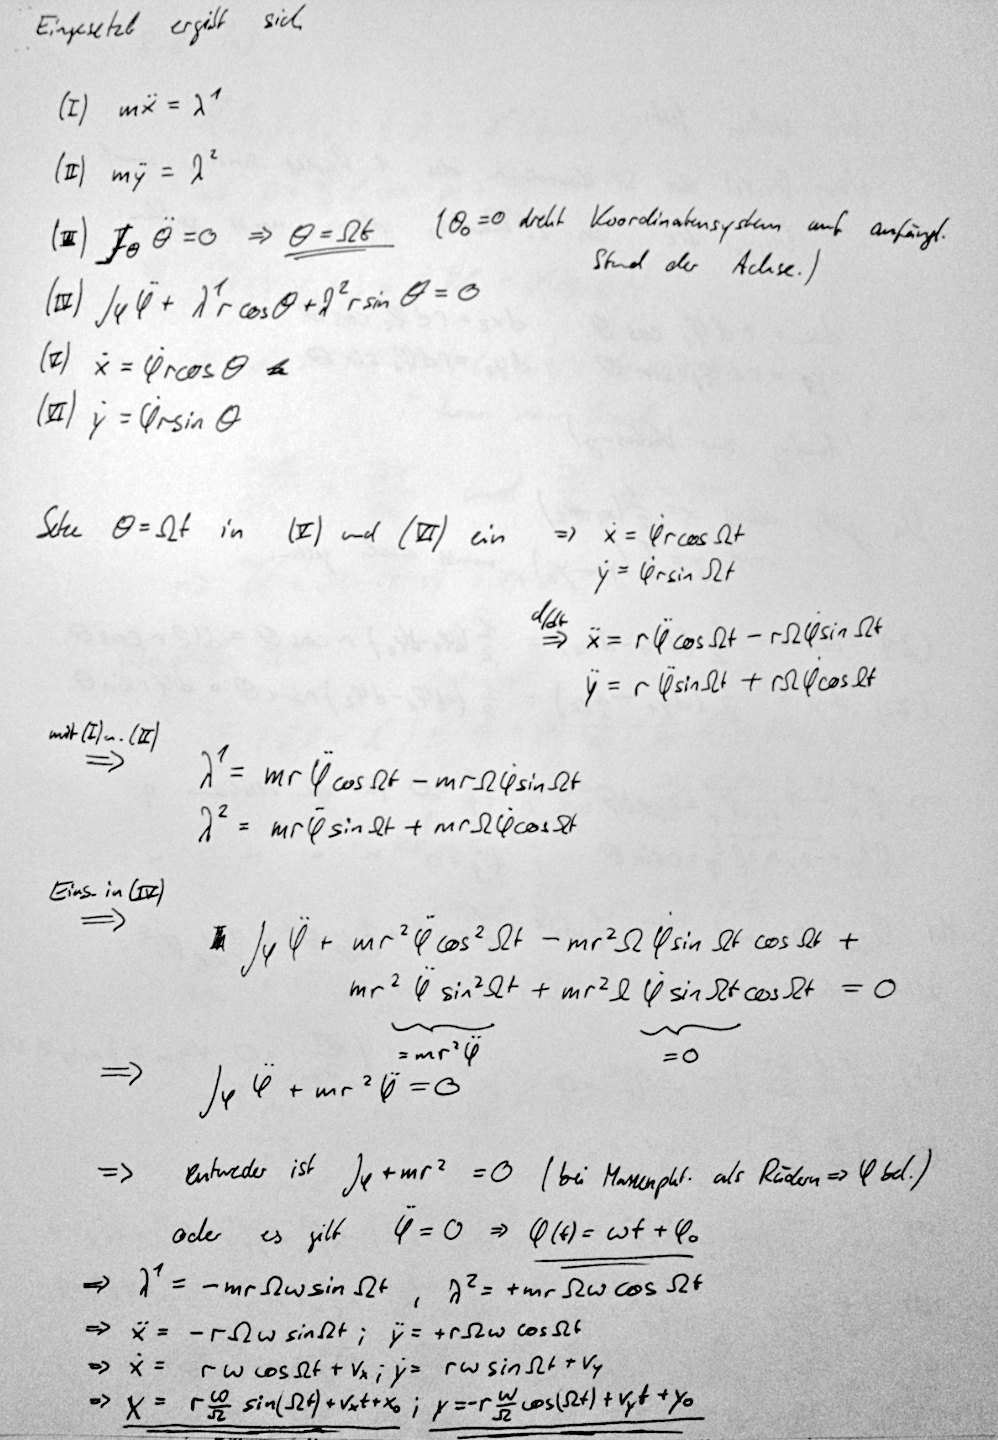 Eingesetzt ergibt sich
(I) mẍ = λ¹
(II) mÿ = λ²
(III) J_θ θ̈ = 0 ⇒ θ = Ωt (θ₀ = 0 dreht Koordinatensystem auf anfängl.
Stand der Achse.)
(IV) J_φ φ̈ + λ¹ r cos θ + λ² r sin θ = 0
(V) ẋ = φ̇ r cos θ
(VI) ẏ = φ̇ r sin θ
Setze θ = Ωt in (V) und (VI) ein ⇒ ẋ = φ̇ r cos Ωt
ẏ = φ̇ r sin Ωt
d/dt ⇒ ẍ = r φ̈ cos Ωt − rΩ φ̇ sin Ωt
ÿ = r φ̈ sin Ωt + rΩ φ̇ cos Ωt
mit (I) u. (II)
⇒ λ¹ = mr φ̈ cos Ωt − mrΩ φ̇ sin Ωt
λ² = mr φ̈ sin Ωt + mrΩ φ̇ cos Ωt
Eins. in (IV)
⇒
J_φ φ̈ + mr² φ̈ cos² Ωt − mr²Ω φ̇ sin Ωt cos Ωt +
mr² φ̈ sin² Ωt + mr²Ω φ̇ sin Ωt cos Ωt = 0
= mr² φ̈ = 0
⇒ J_φ φ̈ + mr² φ̈ = 0
⇒ entweder ist J_φ + mr² = 0 (bei Massenpkt. als Rädern ⇒ φ bel.)
oder es gilt φ̈ = 0 ⇒ φ(t) = ωt + φ₀
⇒ λ¹ = −mrΩω sin Ωt , λ² = +mrΩω cos Ωt
⇒ ẍ = −rΩω sin Ωt ; ÿ = +rΩω cos Ωt
⇒ ẋ = rω cos Ωt + v_x ; ẏ = rω sin Ωt + v_y
⇒ x = r ω/Ω sin(Ωt) + v_x t + x₀ ; y = −r ω/Ω cos(Ωt) + v_y t + y₀